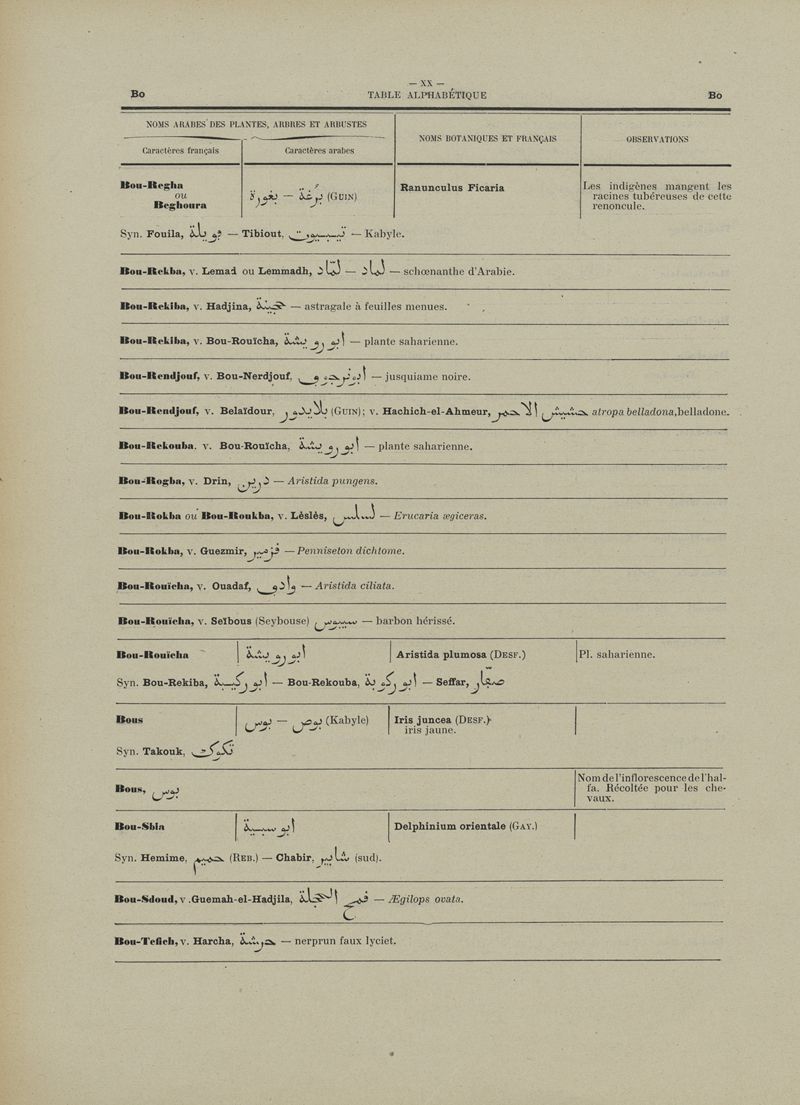 — XX —
Bo TABLE ALPHABÉTIQUE Bo
NOMS ARABES DES PLANTES, ARBRES ET ARBUSTES
NOMS BOTANIQUES ET FRANÇAIS
OBSERVATIONS
Caractères français
Caractères arabes
Bou-Regha
ou
Beghoura
برغة — بغورة (GUIN)
Ranunculus Ficaria
Les indigènes mangent les
racines tubéreuses de cette
renoncule.
Syn. Fouila, فويلة — Tibiout, تيبيوت — Kabyle.
Bou-Rekba, v. Lemad ou Lemmadh, لماد — لمّاد — schœnanthe d'Arabie.
Bou-Rekiba, v. Hadjina, حجينة — astragale à feuilles menues.
Bou-Rekiba, v. Bou-Rouïcha, ابو رويشة — plante saharienne.
Bou-Rendjouf, v. Bou-Nerdjouf, ابو نرجوف — jusquiame noire.
Bou-Rendjouf, v. Belaïdour, بلايدور (GUIN); v. Hachich-el-Ahmeur, حشيش الاحمر atropa belladona, belladone.
Bou-Rekouba. v. Bou-Rouïcha, ابو رويشة — plante saharienne.
Bou-Rogba, v. Drin, درين — Aristida pungens.
Bou-Rokba ou Bou-Roukba, v. Lèslès, لسلس — Erucaria ægiceras.
Bou-Rokba, v. Guezmir, قزمير — Penniseton dichtome.
Bou-Rouïcha, v. Ouadaf, وادف — Aristida ciliata.
Bou-Rouïcha, v. Seïbous (Seybouse) سيبوس — barbon hérissé.
Bou-Rouïcha
ابو رويشة
Aristida plumosa (DESF.)
Pl. saharienne.
Syn. Bou-Rekiba, ابو ركيبة — Bou-Rekouba, ابو ركوبة — Seffar, صفار
Bous
بوس — بوص (Kabyle)
Iris juncea (DESF.)
iris jaune.
Syn. Takouk, تكوكت
Bous, بوس
Nom de l'inflorescence de l'hal-
fa. Récoltée pour les che-
vaux.
Bou-Sbia
ابو سبيبة
Delphinium orientale (GAY.)
Syn. Hemime, حميم (REB.) — Chabir, شابير (sud).
Bou-Sdoud, v .Guemah-el-Hadjila, قمح الحجلة — Ægilops ovata.
Bou-Tefich, v. Harcha, حرشة — nerprun faux lyciet.